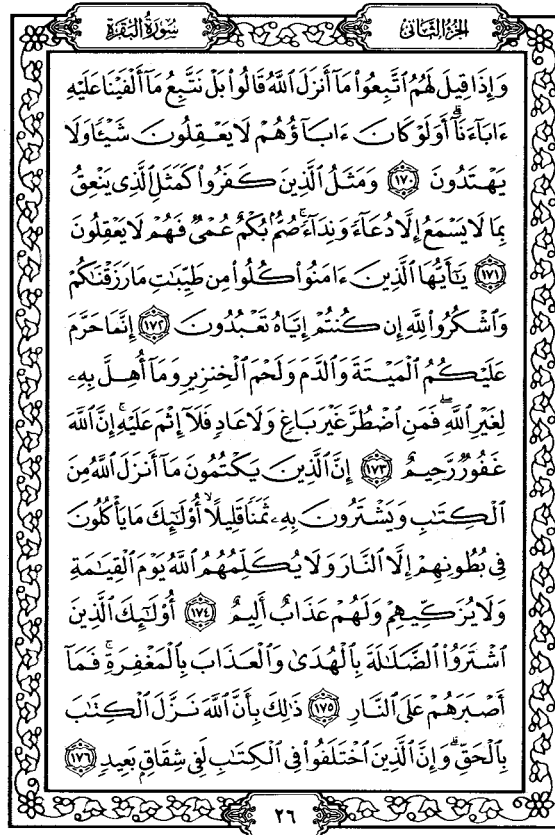 سُورَةُ البَقَرَةِ
الجُزْءُ الثَّانِي
وَإِذَا قِيلَ لَهُمُ ٱتَّبِعُوا۟ مَآ أَنزَلَ ٱللَّهُ قَالُوا۟ بَلْ نَتَّبِعُ مَآ أَلْفَيْنَا عَلَيْهِ
ءَابَآءَنَآۗ أَوَلَوْ كَانَ ءَابَآؤُهُمْ لَا يَعْقِلُونَ شَيْـًٔا وَلَا
يَهْتَدُونَ ١٧٠ وَمَثَلُ ٱلَّذِينَ كَفَرُوا۟ كَمَثَلِ ٱلَّذِى يَنْعِقُ
بِمَا لَا يَسْمَعُ إِلَّا دُعَآءً وَنِدَآءًۚ صُمٌّۢ بُكْمٌ عُمْىٌ فَهُمْ لَا يَعْقِلُونَ
١٧١ يَـٰٓأَيُّهَا ٱلَّذِينَ ءَامَنُوا۟ كُلُوا۟ مِن طَيِّبَـٰتِ مَا رَزَقْنَـٰكُمْ
وَٱشْكُرُوا۟ لِلَّهِ إِن كُنتُمْ إِيَّاهُ تَعْبُدُونَ ١٧٢ إِنَّمَا حَرَّمَ
عَلَيْكُمُ ٱلْمَيْتَةَ وَٱلدَّمَ وَلَحْمَ ٱلْخِنزِيرِ وَمَآ أُهِلَّ بِهِۦ
لِغَيْرِ ٱللَّهِۖ فَمَنِ ٱضْطُرَّ غَيْرَ بَاغٍ وَلَا عَادٍ فَلَآ إِثْمَ عَلَيْهِۚ إِنَّ ٱللَّهَ
غَفُورٌ رَّحِيمٌ ١٧٣ إِنَّ ٱلَّذِينَ يَكْتُمُونَ مَآ أَنزَلَ ٱللَّهُ مِنَ
ٱلْكِتَـٰبِ وَيَشْتَرُونَ بِهِۦ ثَمَنًا قَلِيلًاۙ أُو۟لَـٰٓئِكَ مَا يَأْكُلُونَ
فِى بُطُونِهِمْ إِلَّا ٱلنَّارَ وَلَا يُكَلِّمُهُمُ ٱللَّهُ يَوْمَ ٱلْقِيَـٰمَةِ
وَلَا يُزَكِّيهِمْ وَلَهُمْ عَذَابٌ أَلِيمٌ ١٧٤ أُو۟لَـٰٓئِكَ ٱلَّذِينَ
ٱشْتَرَوُا۟ ٱلضَّلَـٰلَةَ بِٱلْهُدَىٰ وَٱلْعَذَابَ بِٱلْمَغْفِرَةِۚ فَمَآ
أَصْبَرَهُمْ عَلَى ٱلنَّارِ ١٧٥ ذَٰلِكَ بِأَنَّ ٱللَّهَ نَزَّلَ ٱلْكِتَـٰبَ
بِٱلْحَقِّۗ وَإِنَّ ٱلَّذِينَ ٱخْتَلَفُوا۟ فِى ٱلْكِتَـٰبِ لَفِى شِقَاقٍۭ بَعِيدٍ ١٧٦
٢٦